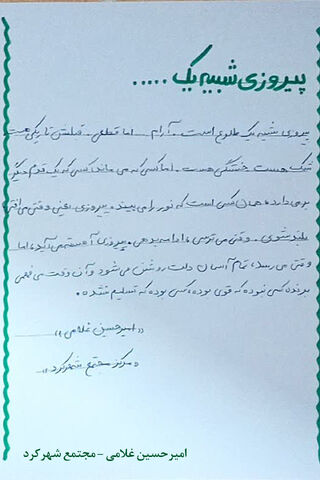 پیروزی شبیه یک .....
پیروزی شبیه یک طلوع است. آرام اما قطعی. قبلش تاریکی هست
شک هست خستگی هست. اما کسی که می ماند، کسی که یک قدم دیگر
برمی دارد، همان کسی است که نور را می بیند. پیروزی یعنی وقتی می افتی
بلند شوی. وقتی می ترسی، ادامه بدهی. پیروزی آهسته می آید، اما
وقتی می رسد، تمام آسمان دلت روشن می شود و آن وقت می فهمی
برنده کسی نبوده که قوی بوده، کسی بوده که تسلیم نشده.
«امیرحسین غلامی»
«مرکز مجتمع شهرکرد»
امیرحسین غلامی - مجتمع شهرکرد